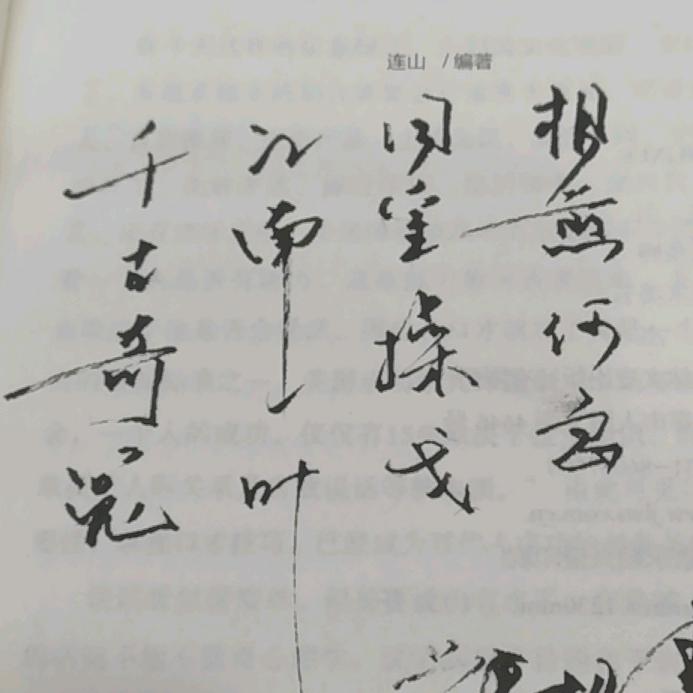 连山 / 编著
千古奇冤
江南一叶
同室操戈
相煎何急